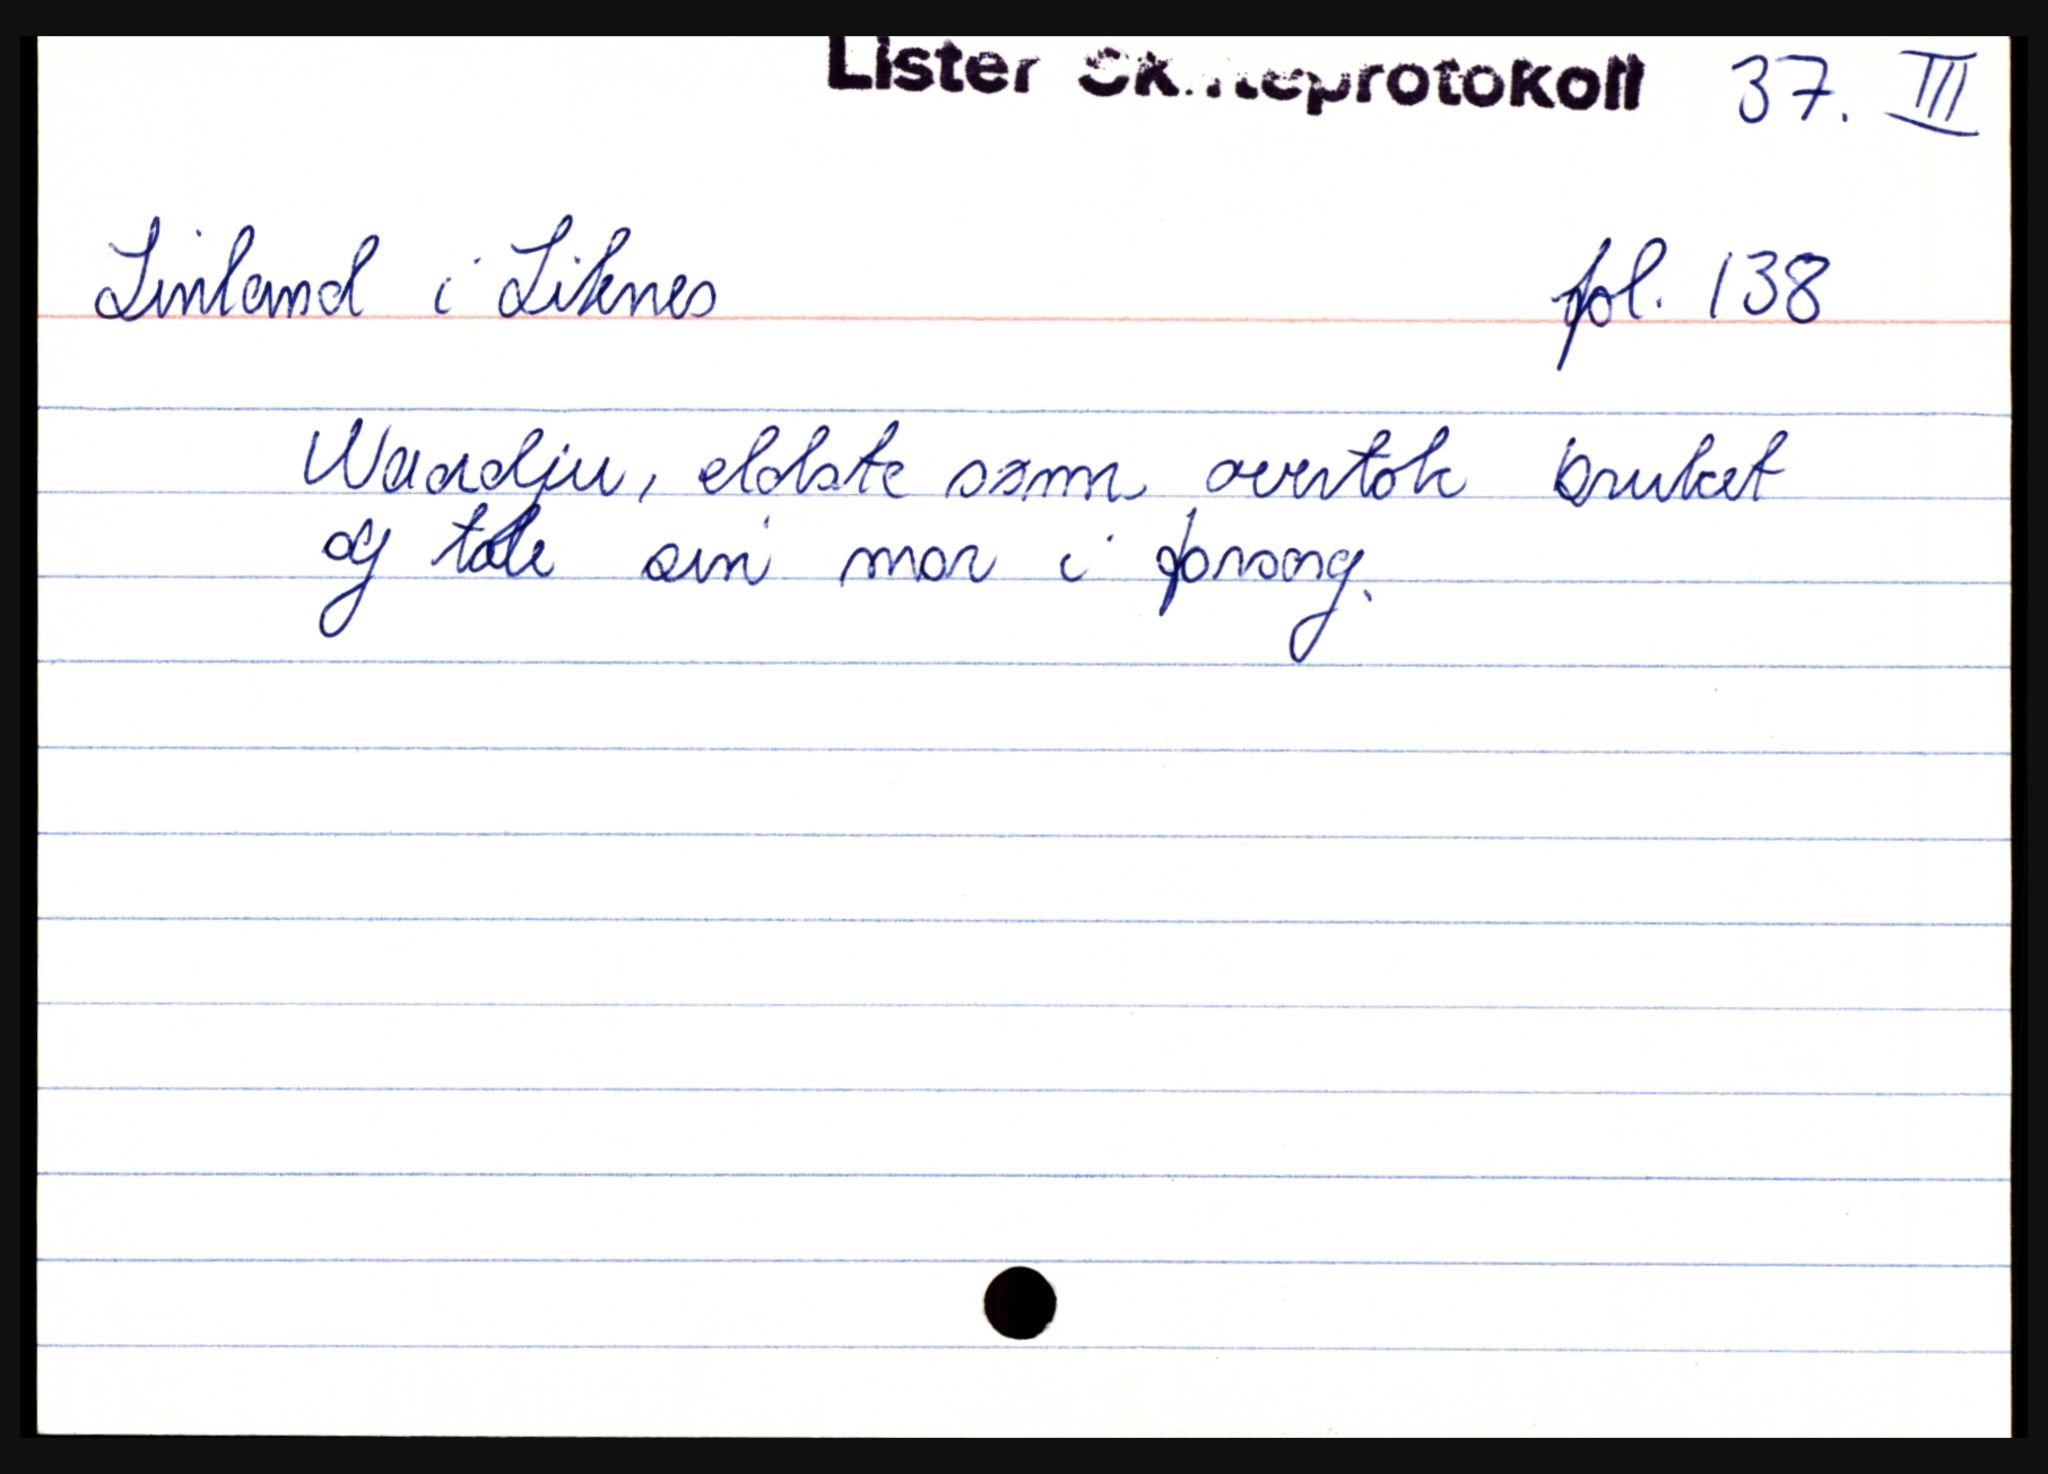 Lister Skifteprotokoll 37. III
Linland i Liknes fol. 138
eldste sønn overtok bruket
og tok sin mor i forsorg.